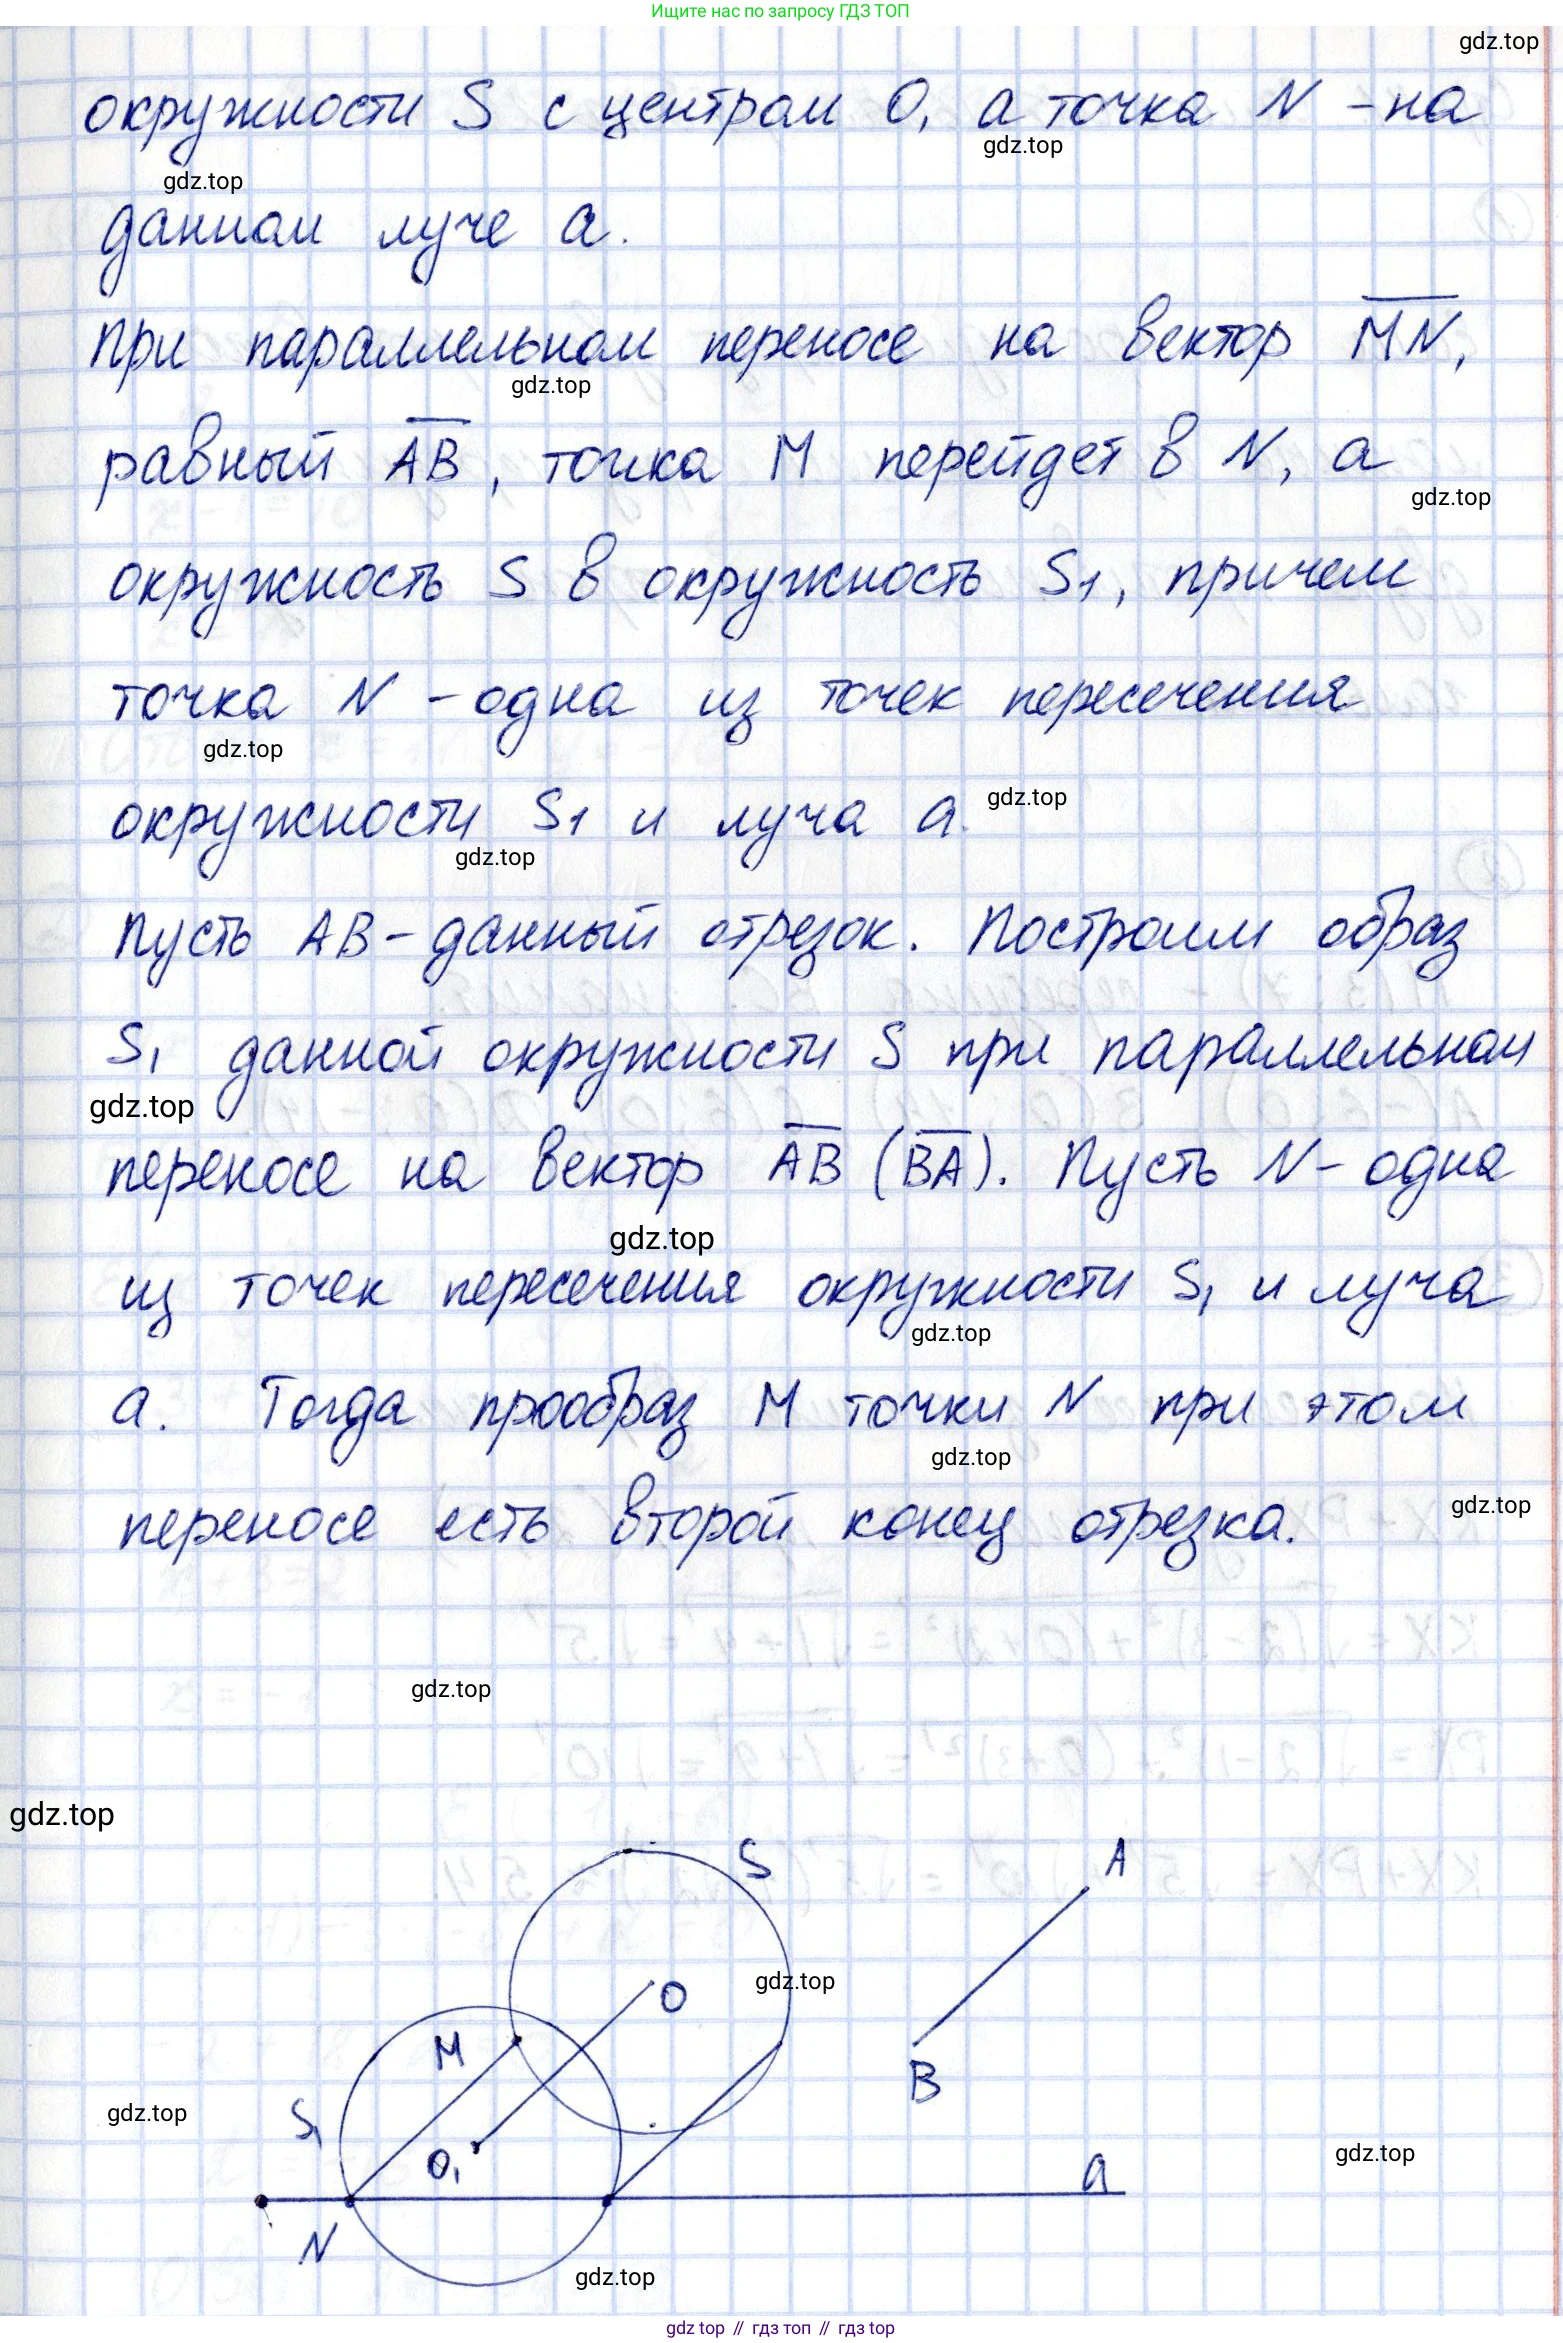 Ищите нас по запросу ГДЗ ТОП
gdz.top
окружности S с центром O, а точка N - на
gdz.top
gdz.top
данном луче a.
При параллельном переносе на вектор MN,
gdz.top
равный AB, точка M перейдет в N, а
gdz.top
окружность S в окружность S1, причем
точка N - одна из точек пересечения
gdz.top
gdz.top
окружности S1 и луча a.
gdz.top
Пусть AB - данный отрезок. Построим образ
S1 данной окружности S при параллельном
gdz.top
переносе на вектор AB (BA). Пусть N - одна
gdz.top
из точек пересечения окружности S1 и луча
gdz.top
a. Тогда прообраз M точки N при этом
gdz.top
переносе есть второй конец отрезка.
gdz.top
gdz.top
gdz.top
S
A
gdz.top
O
M
B
S1
gdz.top
O1
gdz.top
a
N
gdz.top
gdz top // гдз топ // gdz.top